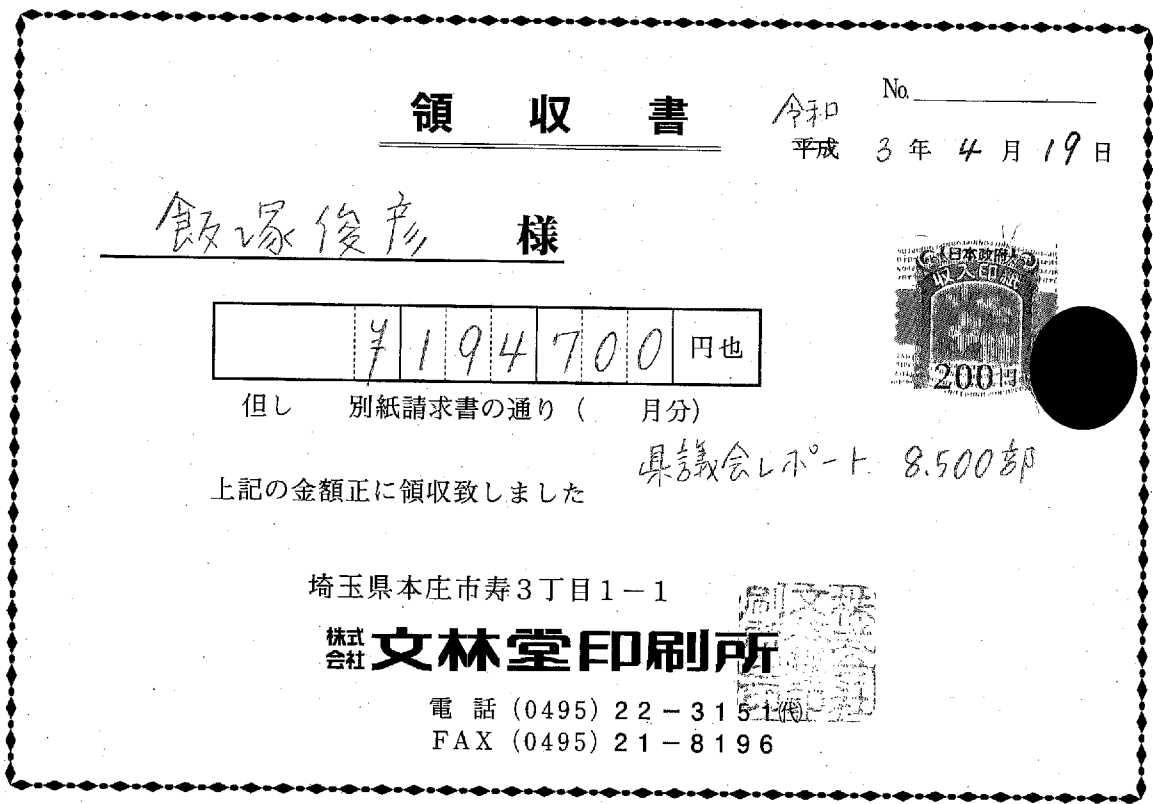 領収書
No.
令和
平成 3年4月19日
飯塚俊彦 様
日本政府
収入印紙
200円
¥194700円也
但し 別紙請求書の通り( 月分)
県議会レポート 8.500部
上記の金額正に領収致しました
埼玉県本庄市寿3丁目1-1
株式会社 文林堂印刷所
電話 (0495) 22-3151㈹
FAX (0495) 21-8196